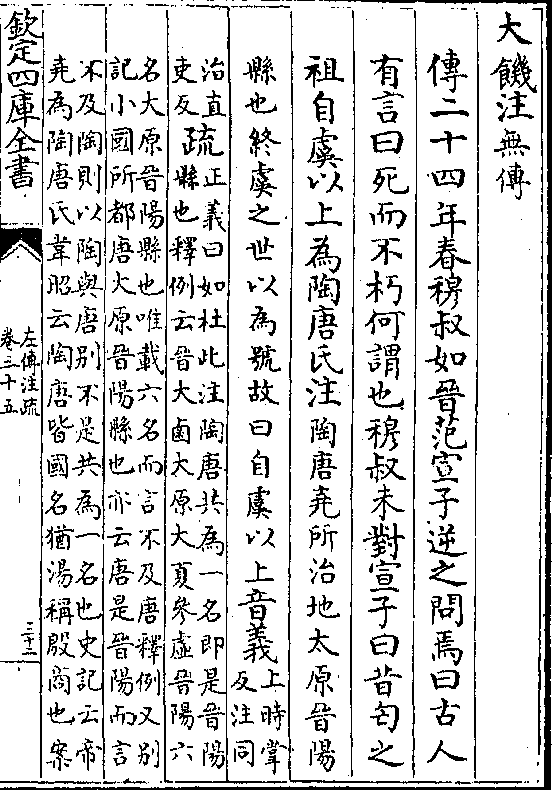 大饑注無傳
傳二十四年春穆叔如晉范宣子逆之問焉曰古人
有言曰死而不朽何謂也穆叔未對宣子曰昔匄之
祖自虞以上為陶唐氏注陶唐堯所治地太原晉陽
縣也終虞之世以為號故曰自虞以上音義上時掌
反注同
治直
吏反疏正義曰如杜此注陶唐共為一名即是晉陽
縣也釋例云晉大鹵大原大夏參虛晉陽六
名大原晉陽縣也唯載六名而言不及唐釋例又別
記小國所都唐大原晉陽縣也亦云唐是晉陽而言
不及陶則以陶與唐別不是共為一名也史記云帝
堯為陶唐氏韋昭云陶唐皆國名猶湯稱殷商也案
欽定四庫全書
左傳注疏
卷三十五
三十二